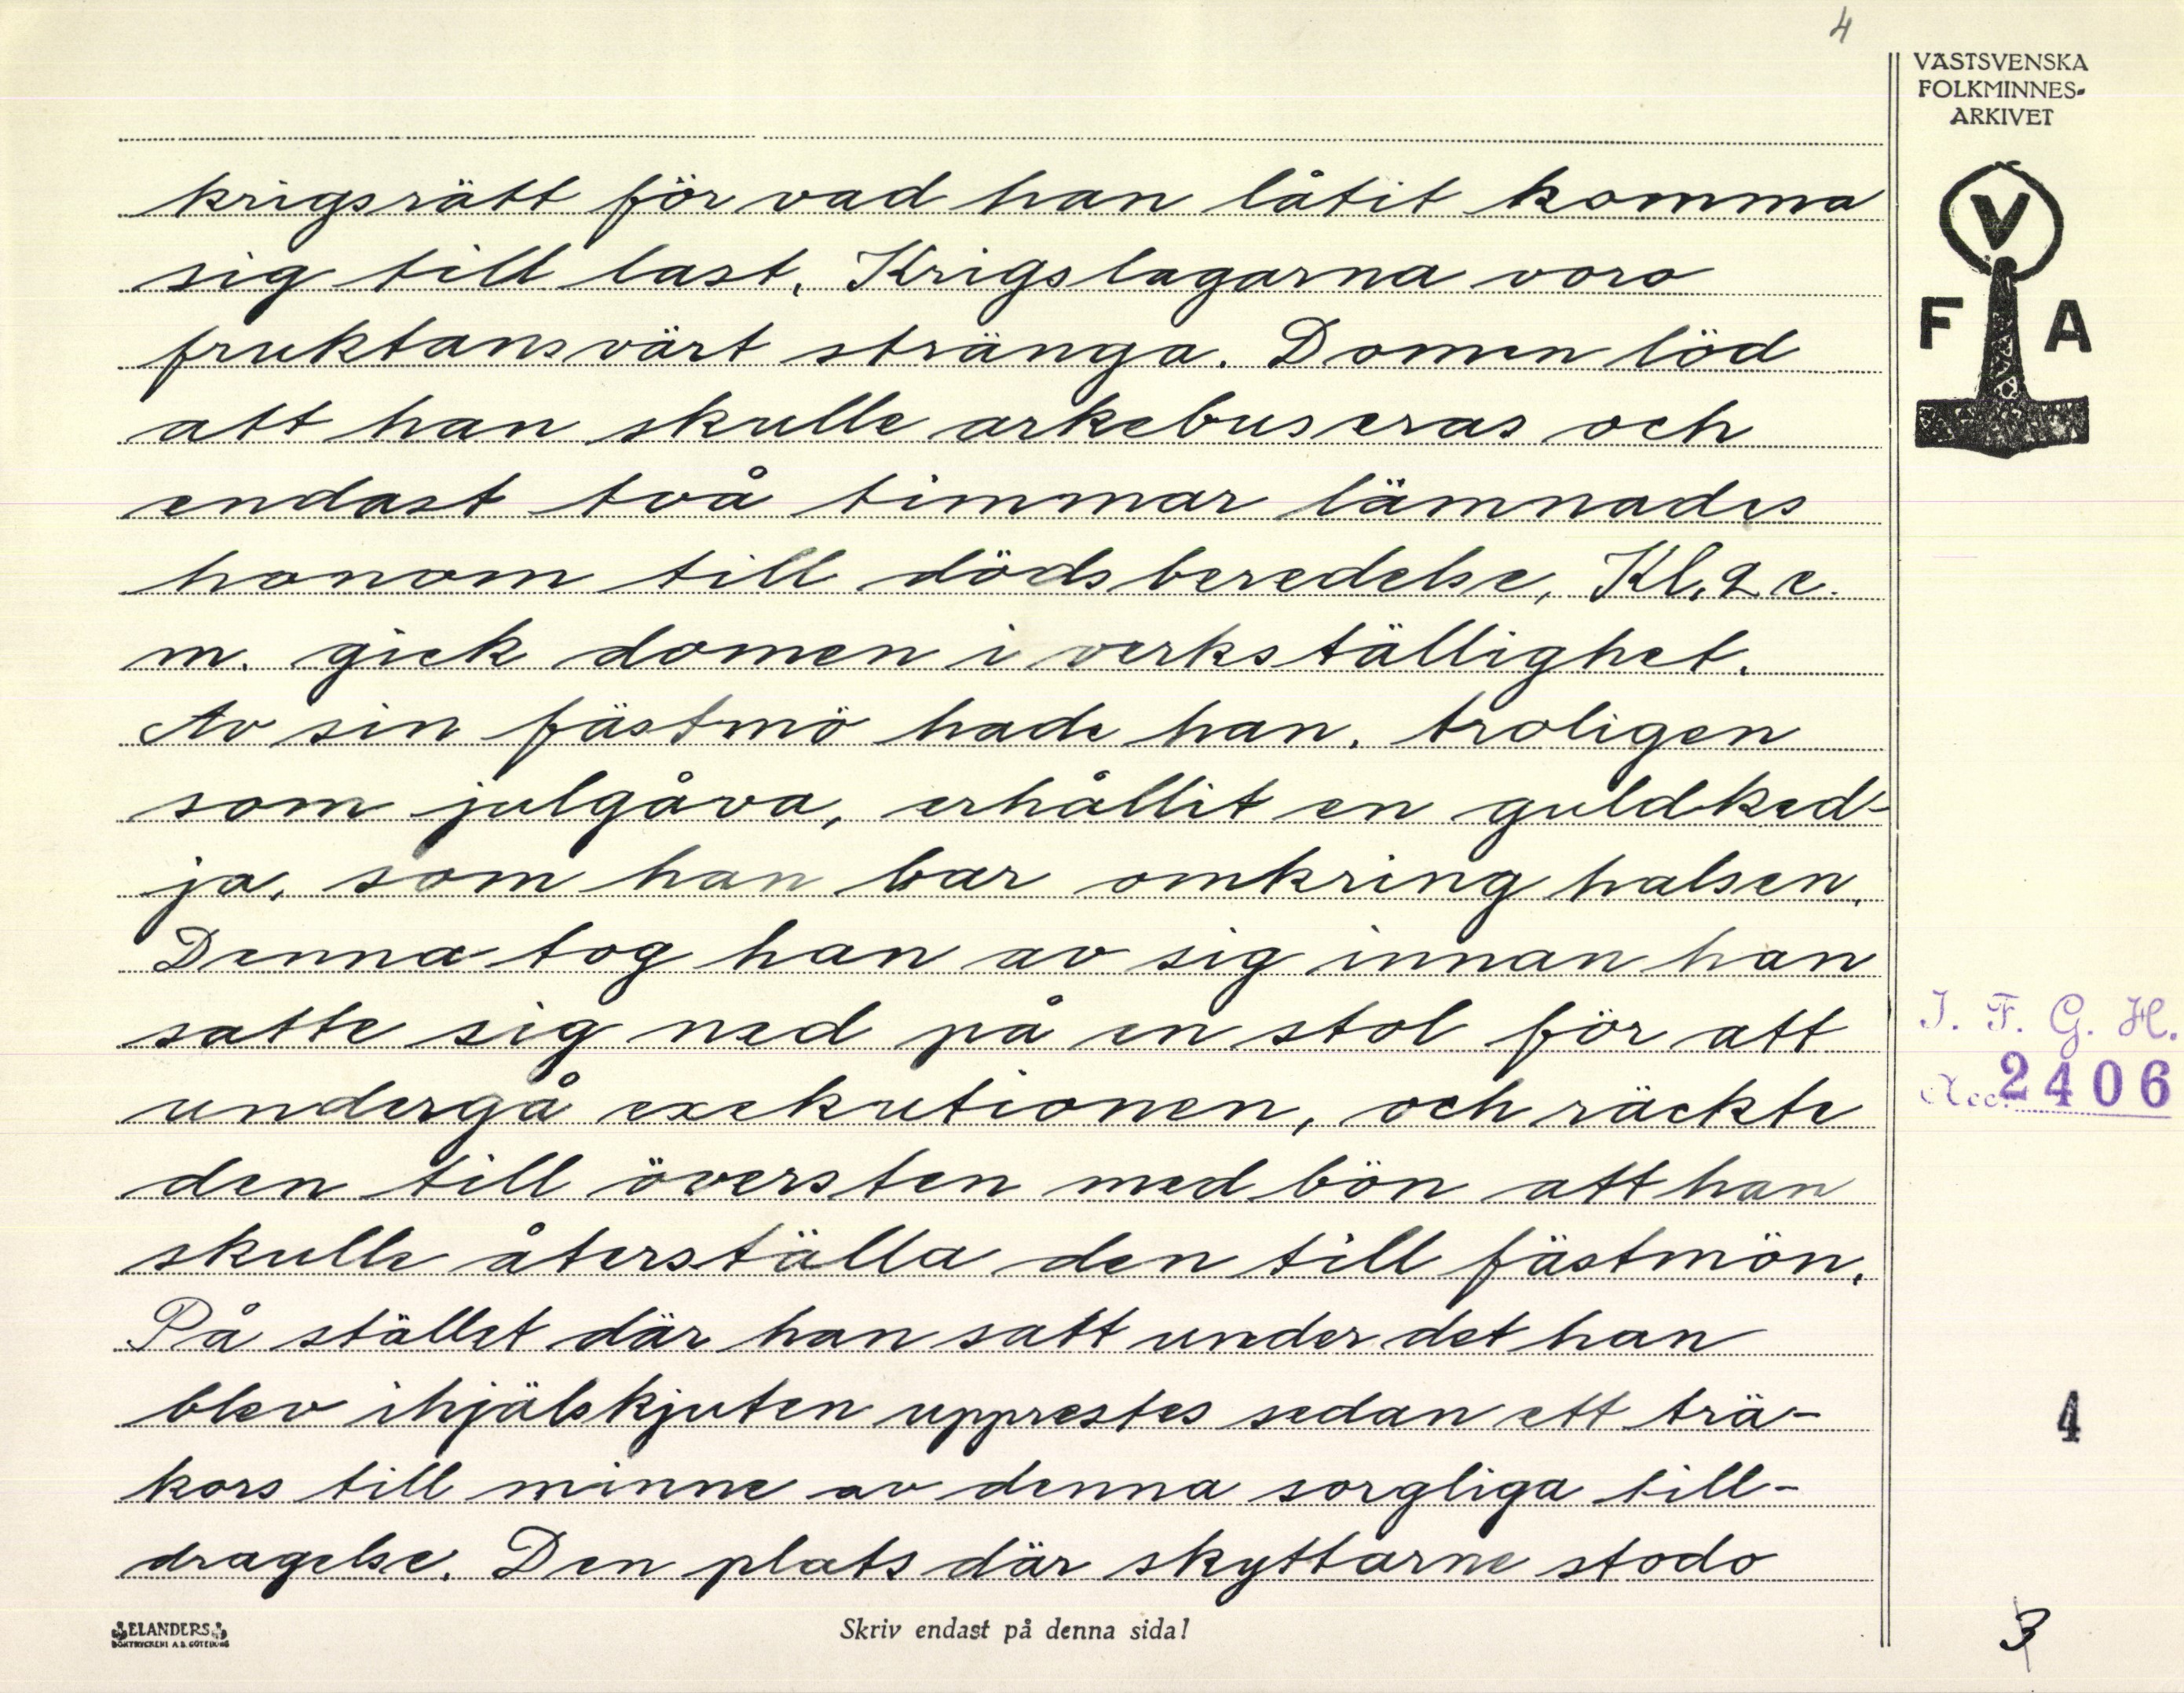 4
VÄSTSVENSKA
FOLKMINNES-
ARKIVET
V
F A
krigsrätt för vad han låtit komma
sig till last. Krigslagarna voro
fruktansvärt stränga. Domen löd
att han skulle arkebuseras och
endast två timmar lämnades
honom till dödsberedelse, Kl. 2 e.
m. gick domen i verkställighet.
Av sin fästmö hade han, troligen
som julgåva, erhållit en guldked-
ja, som han bar omkring halsen.
Denna tog han av sig innan han
satte sig ned på en stol för att
undergå exekutionen, och räckte
den till översten med bön att han
skulle återställa den till fästmön.
På stället där han satt under det han
blev ihjälskjuten upprestes sedan ett trä-
kors till minne av denna sorgliga till-
dragelse. Den plats där skyttarne stodo
I. F. G. H.
Acc. 2406
4
3
ELANDERS
BOKTRYCKERI A.B. GÖTEBORG
Skriv endast på denna sida!